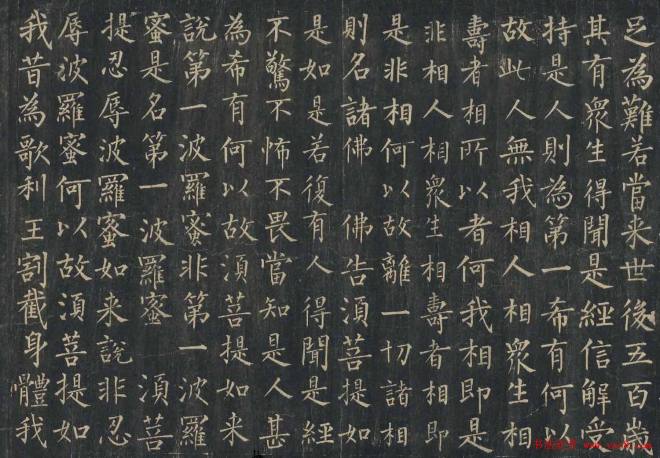 足為難若當来世後五百歲
其有眾生得聞是經信解受
持是人則為第一希有何以
故此人無我相人相眾生相
壽者相所以者何我相即是
非相人相眾生相壽者相即
是非相何以故離一切諸相
則名諸佛 佛告須菩提如
是如是若復有人得聞是經
不驚不怖不畏當知是人甚
為希有何以故須菩提如来
說第一波羅蜜非第一波羅
蜜是名第一波羅蜜 須菩
提忍辱波羅蜜如来說非忍
辱波羅蜜何以故須菩提如
我昔為歌利王割截身體我